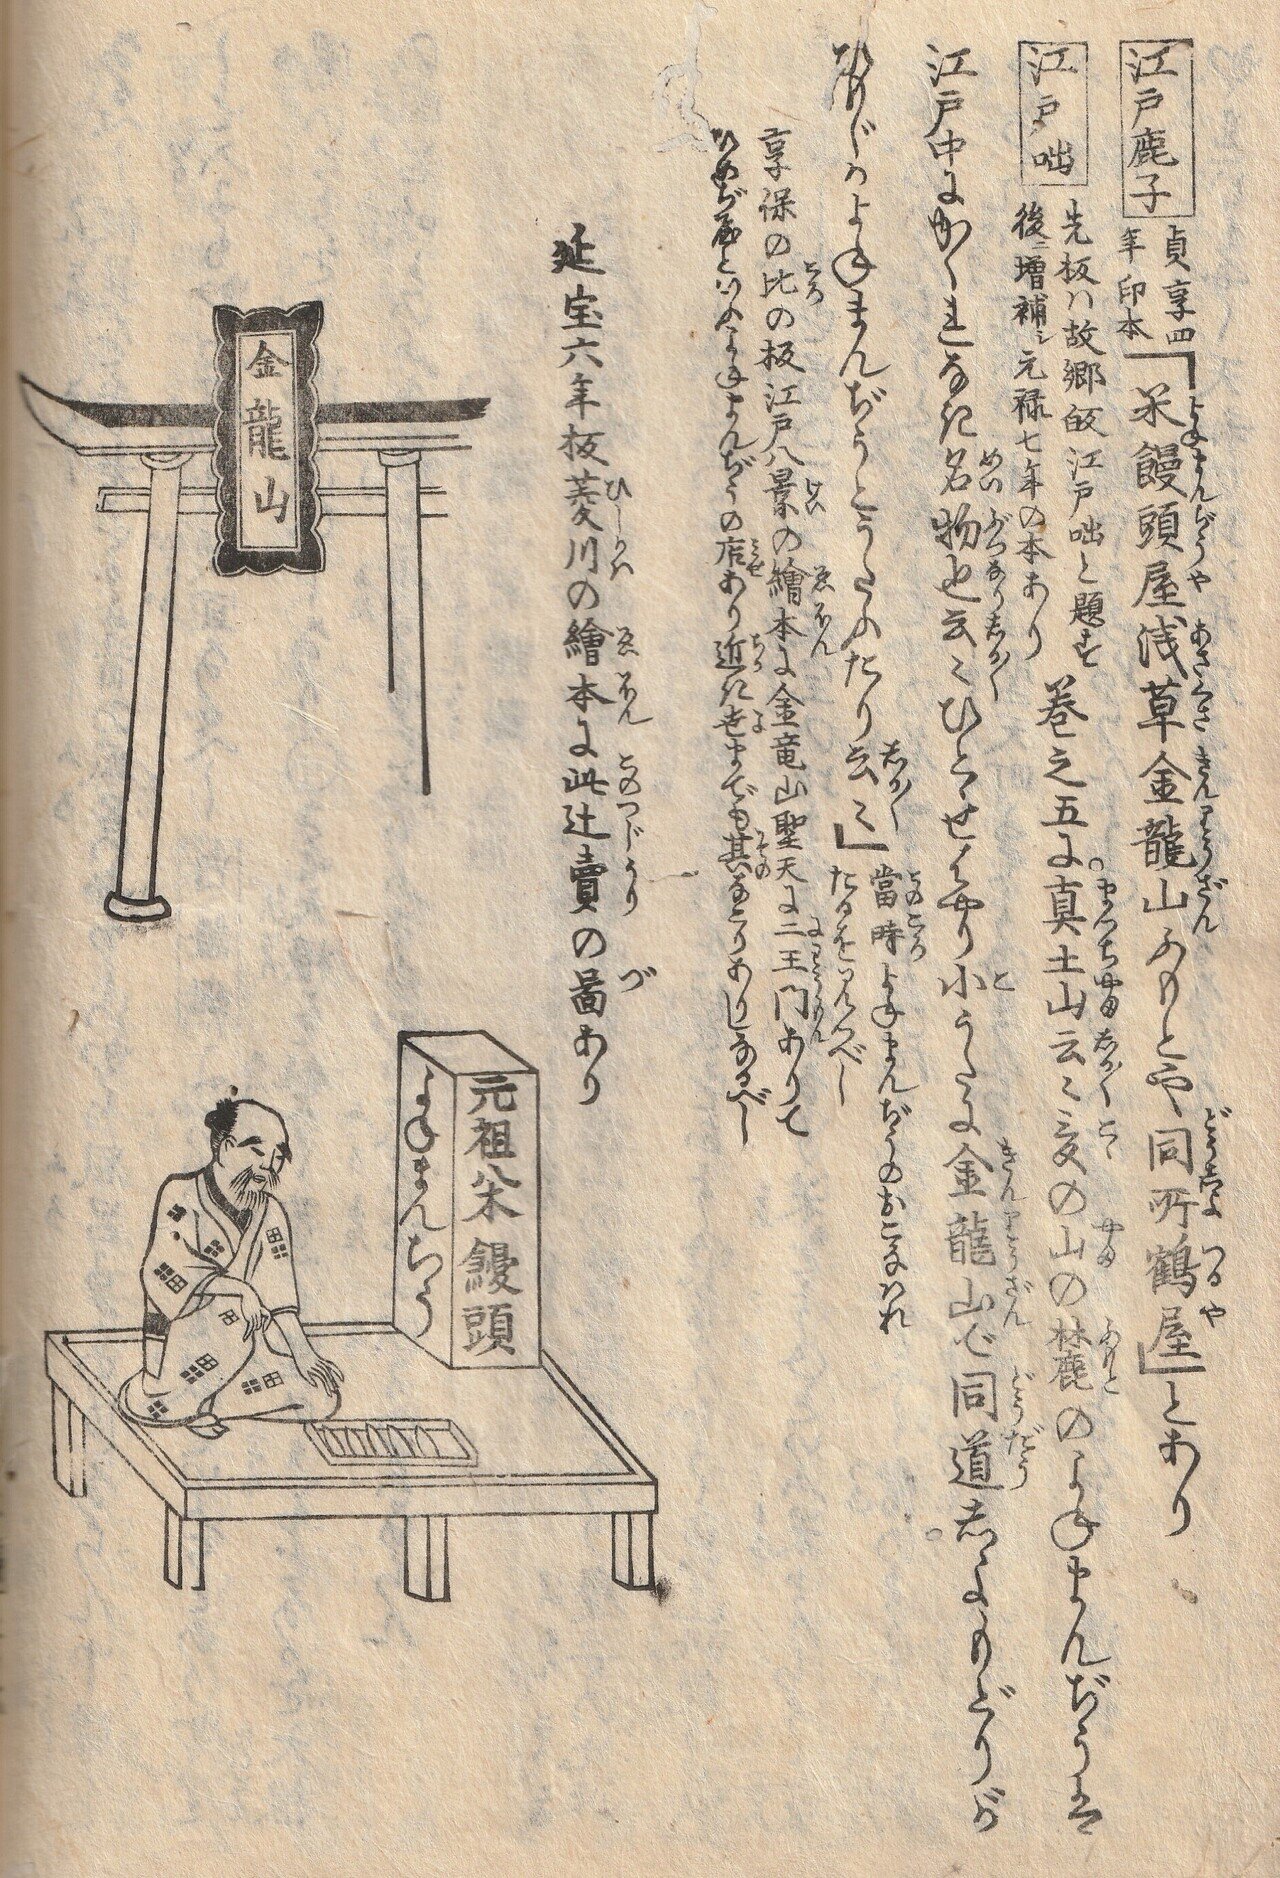 江戸鹿子 貞享四年印本 「米饅頭屋浅草金龍山ふもとや同所鶴屋」とあり
江戸咄 先板ハ故郷皈江戸咄と題す後ニ増補シ元禄七年の本あり 巻之五に真土山云々爰の山の麓のよねまんぢうは
江戸中にかくれなき名物也云々ひとせはやり小うたに金龍山で同道しよもどりが
よねまんぢうとうたふたり云々」 當時よねまんぢうのおこなはれたるを
享保の比の板江戸八景の繪本に金竜山聖天に二王門ありて
よねまんぢうの店あり近き世までも其なごりありしなるべし
延宝六年板菱川の繪本に此辻賣の啚あり
金龍山
元祖 米饅頭
よねまんちう